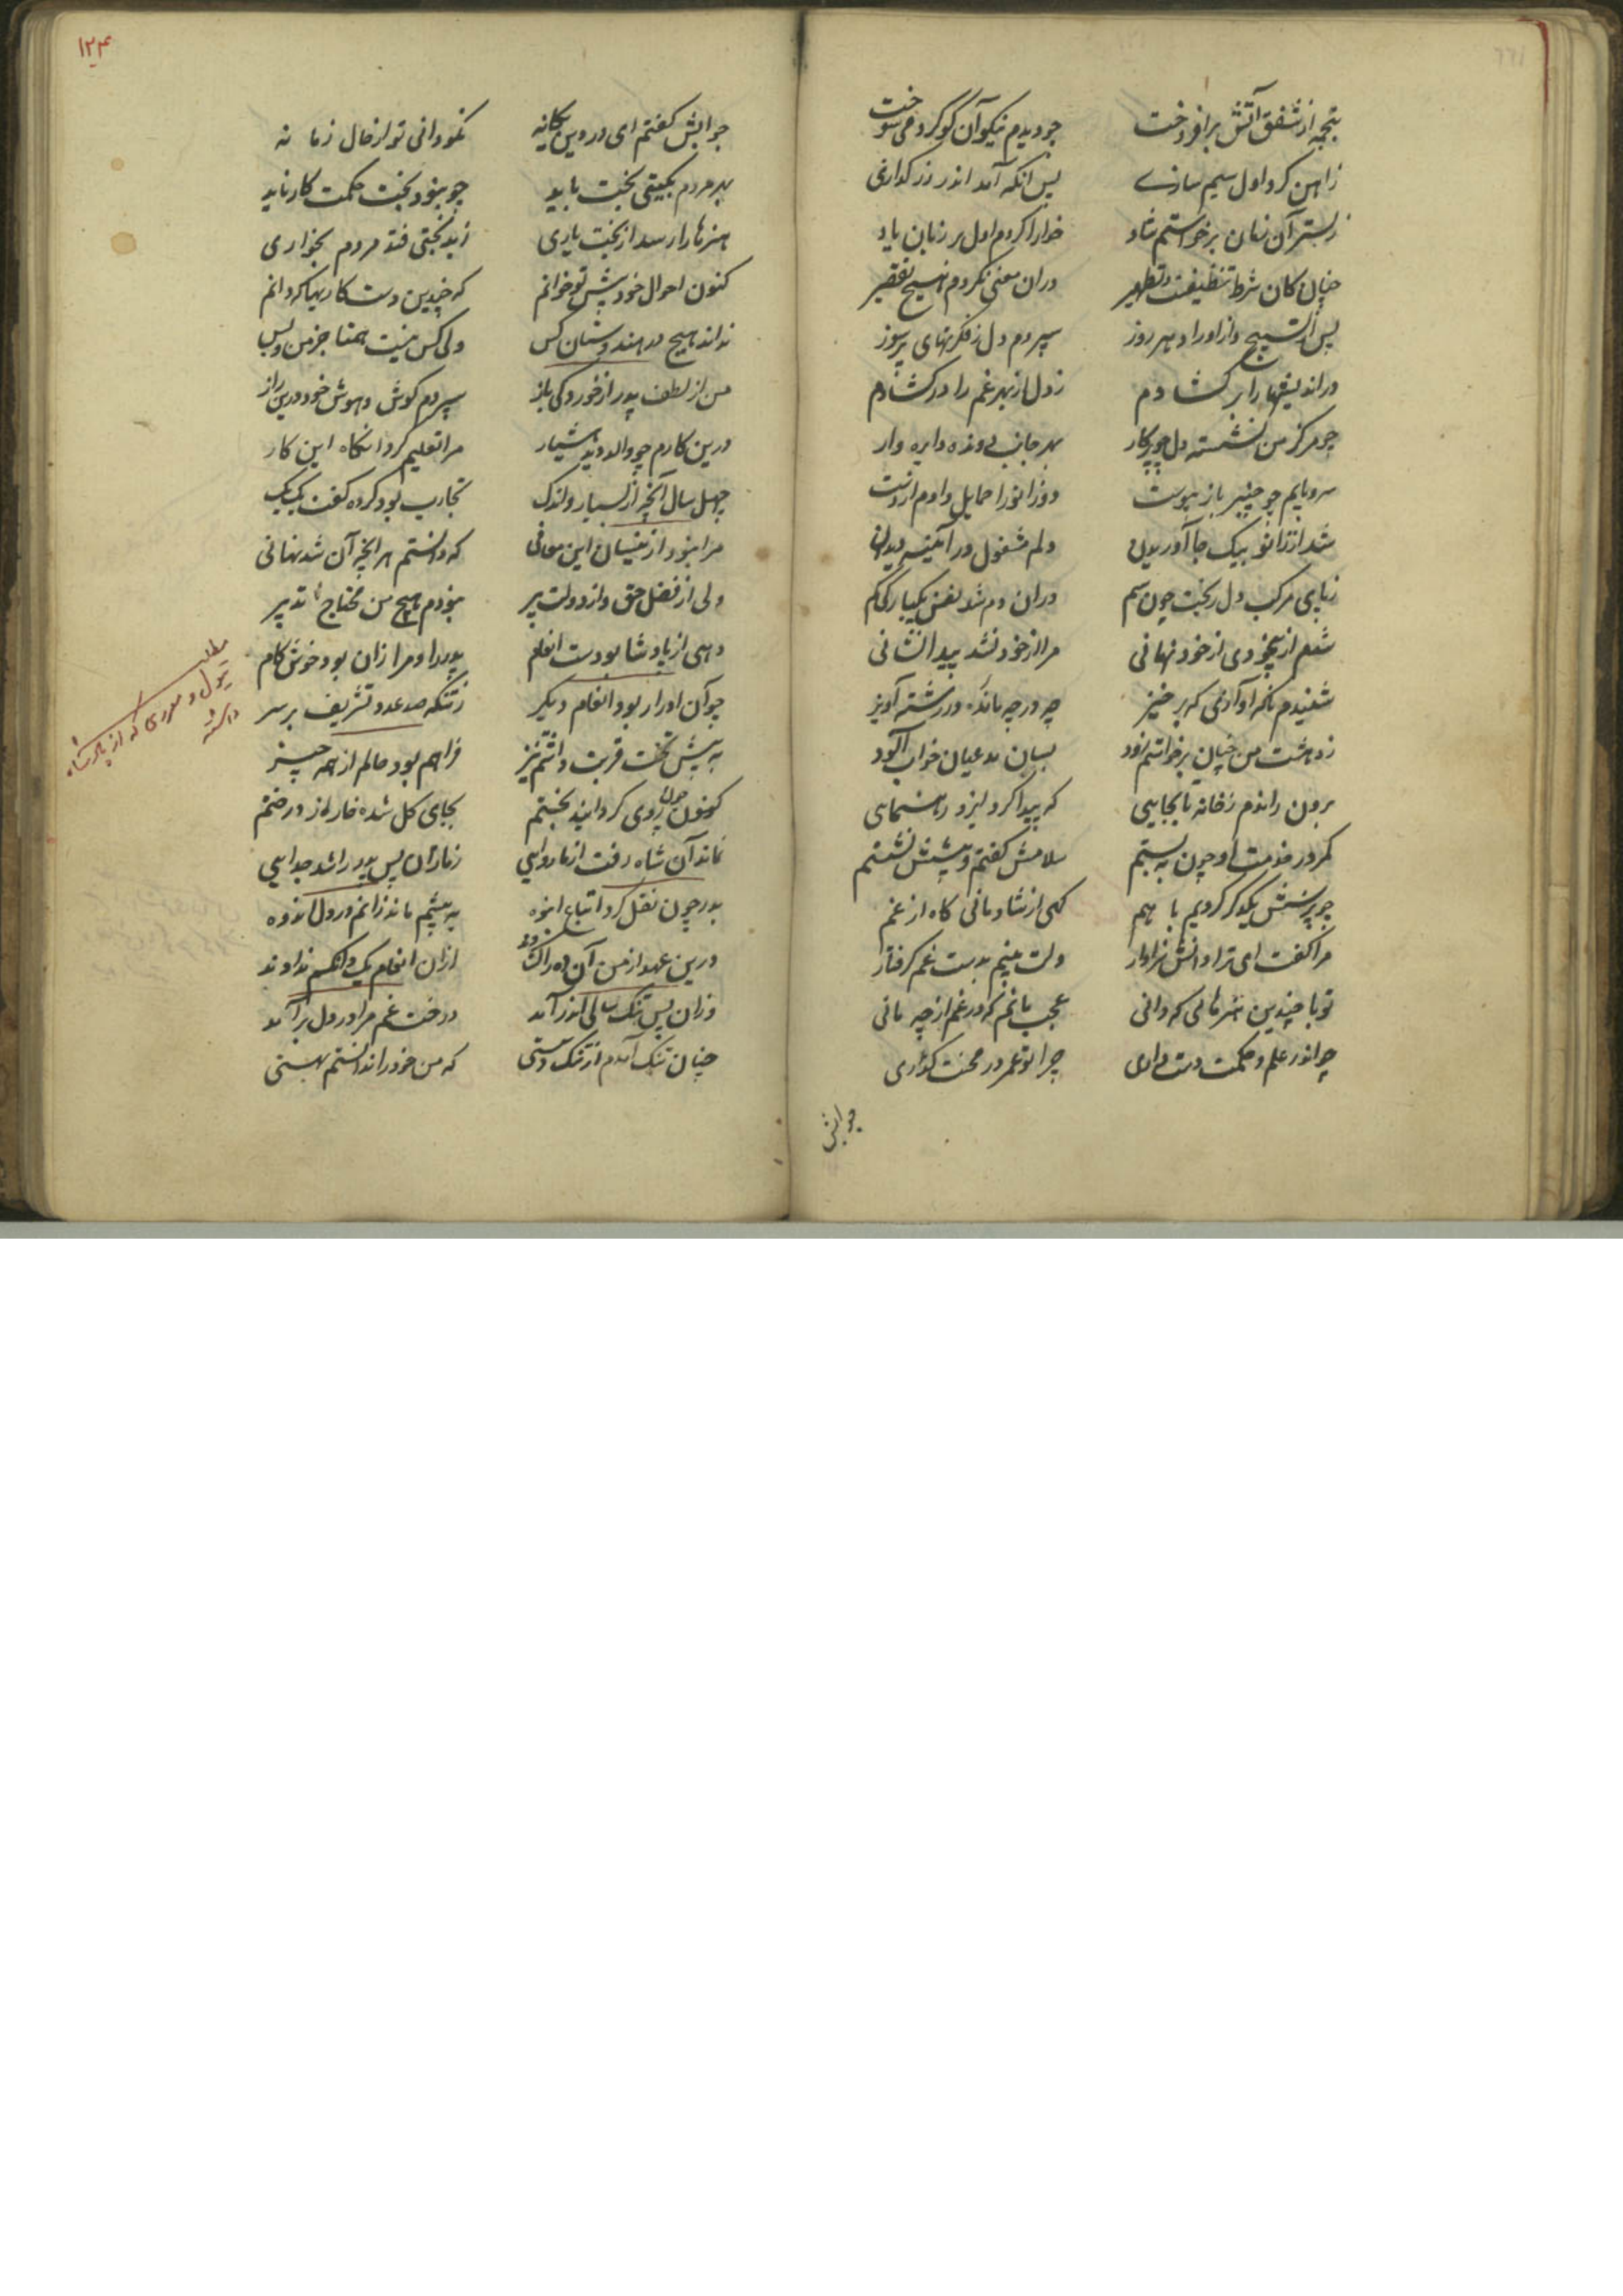 چو دیدم نیکو آن گوگرد می سوخت
زاهن کرد اول سیم سازے
پس انکه آمد اندر زر کدازی
ز بستر آن زمان برخواستم شاد
خدا را کردم اول بر زبان یاد
چنان کان شرط تنظیفت و تطهیر
دران معنی نکردم هیچ تقصیر
پس از تسبیح و از اوراد هر روز
سپردم دل ز فکرتهای پر سوز
در اندیشها را بر کشادم
ز دل از بهر غم را در کشادم
چو مرکز من نشسته دل چو پرکار
بهر جانب دونده دایره وار
سر و پایم چو چنبر باز پیوست
دو زانو را حمایل دادم از دست
دلم مشغول در آئینه دیدن
ز پای مرکب دل ریخت چون سم
دران دم شد نفس یکبارکی کم
شدم از بیخودی از خود نهانی
مرا از خود نشد پیدا نشانی
شنیدم ناکه آوازی که بر خیز
چه در چه مانده در رشته آویز
ز دهشت من چنان برخواستم زود
بسان مدعیان خواب آلود
برون راندم ز خانه تا بجایی
که پیدا کرد ایزد رهنمای
کمر در خدمت او چون به بستم
سلامش کفتم و پیشش نشستم
چو پرسش یکدکر کردیم با هم
کهی از شادمانی کاه از غم
مرا کفت ای ترا دانش سزاوار
دلت بینم بدست غم کرفتار
تو با چندین هنرهائی که دانی
عجب مانم که در غم از چه مانی
چو اندر علم و حکمت دست داری
چرا تو عمر در محنت کذاری
جوابش
۱۲۴
جوابش کفتم ای در دین یکانه
نمودانی تو از حال زمانه
بهر مردم بکیتی بخت باید
چو نبود بخت حکمت کار ناید
هنرها را رسد از بخت یاری
ز بدبختی فتد مردم بخواری
کنون احوال خود پیش تو خوانم
که چندین دست کار کیمیا دانم
نداند هیچ در هندوستان کس
ولی کس نیست همتا جز من و بس
من از لطف پدر از خوردکی باز
سپردم کوش و هوش خود درین راز
درین کارم چو والد دید هشیار
مرا تعلیم کرد انکاه این کار
چهل سال آنچه از بسیار و اندک
تجارب بود کرده کفت یک یک
مرا نبود از نیسان این معانی
که دانستم هر انچه آن شد نهانی
ولی از فضل حق و از دولت پیر
نبودم هیچ من محتاج تدبیر
دهی از پادشا بودست انعام
پدر را و مرا زان بود خوش کام
چو آن ادرار بود انعام دیکر
ز تنکه صد عدد تشریف بر سر
به پیش تخت قربت داشتم نیز
فراهم بود مالم از همه چیز
کنون چون روی کردانید بختم
بجای کل شده خار از درختم
نماند آن شاه رفت از ما روایی
ز مازان پس پدر را شد جدایی
پدر چون نقل کرد اتباع انبوه
به پیشم ماند زانم در دل اندوه
درین عهد از من آن ده را کشودند
ازان انعام یک دانکم ندادند
وزان پس تنک سالی اندر آمد
درخت غم مرا در دل بر آمد
چنان تنک آمدم از تنک دستی
که من خود را ندانستم بهستی
مطلب